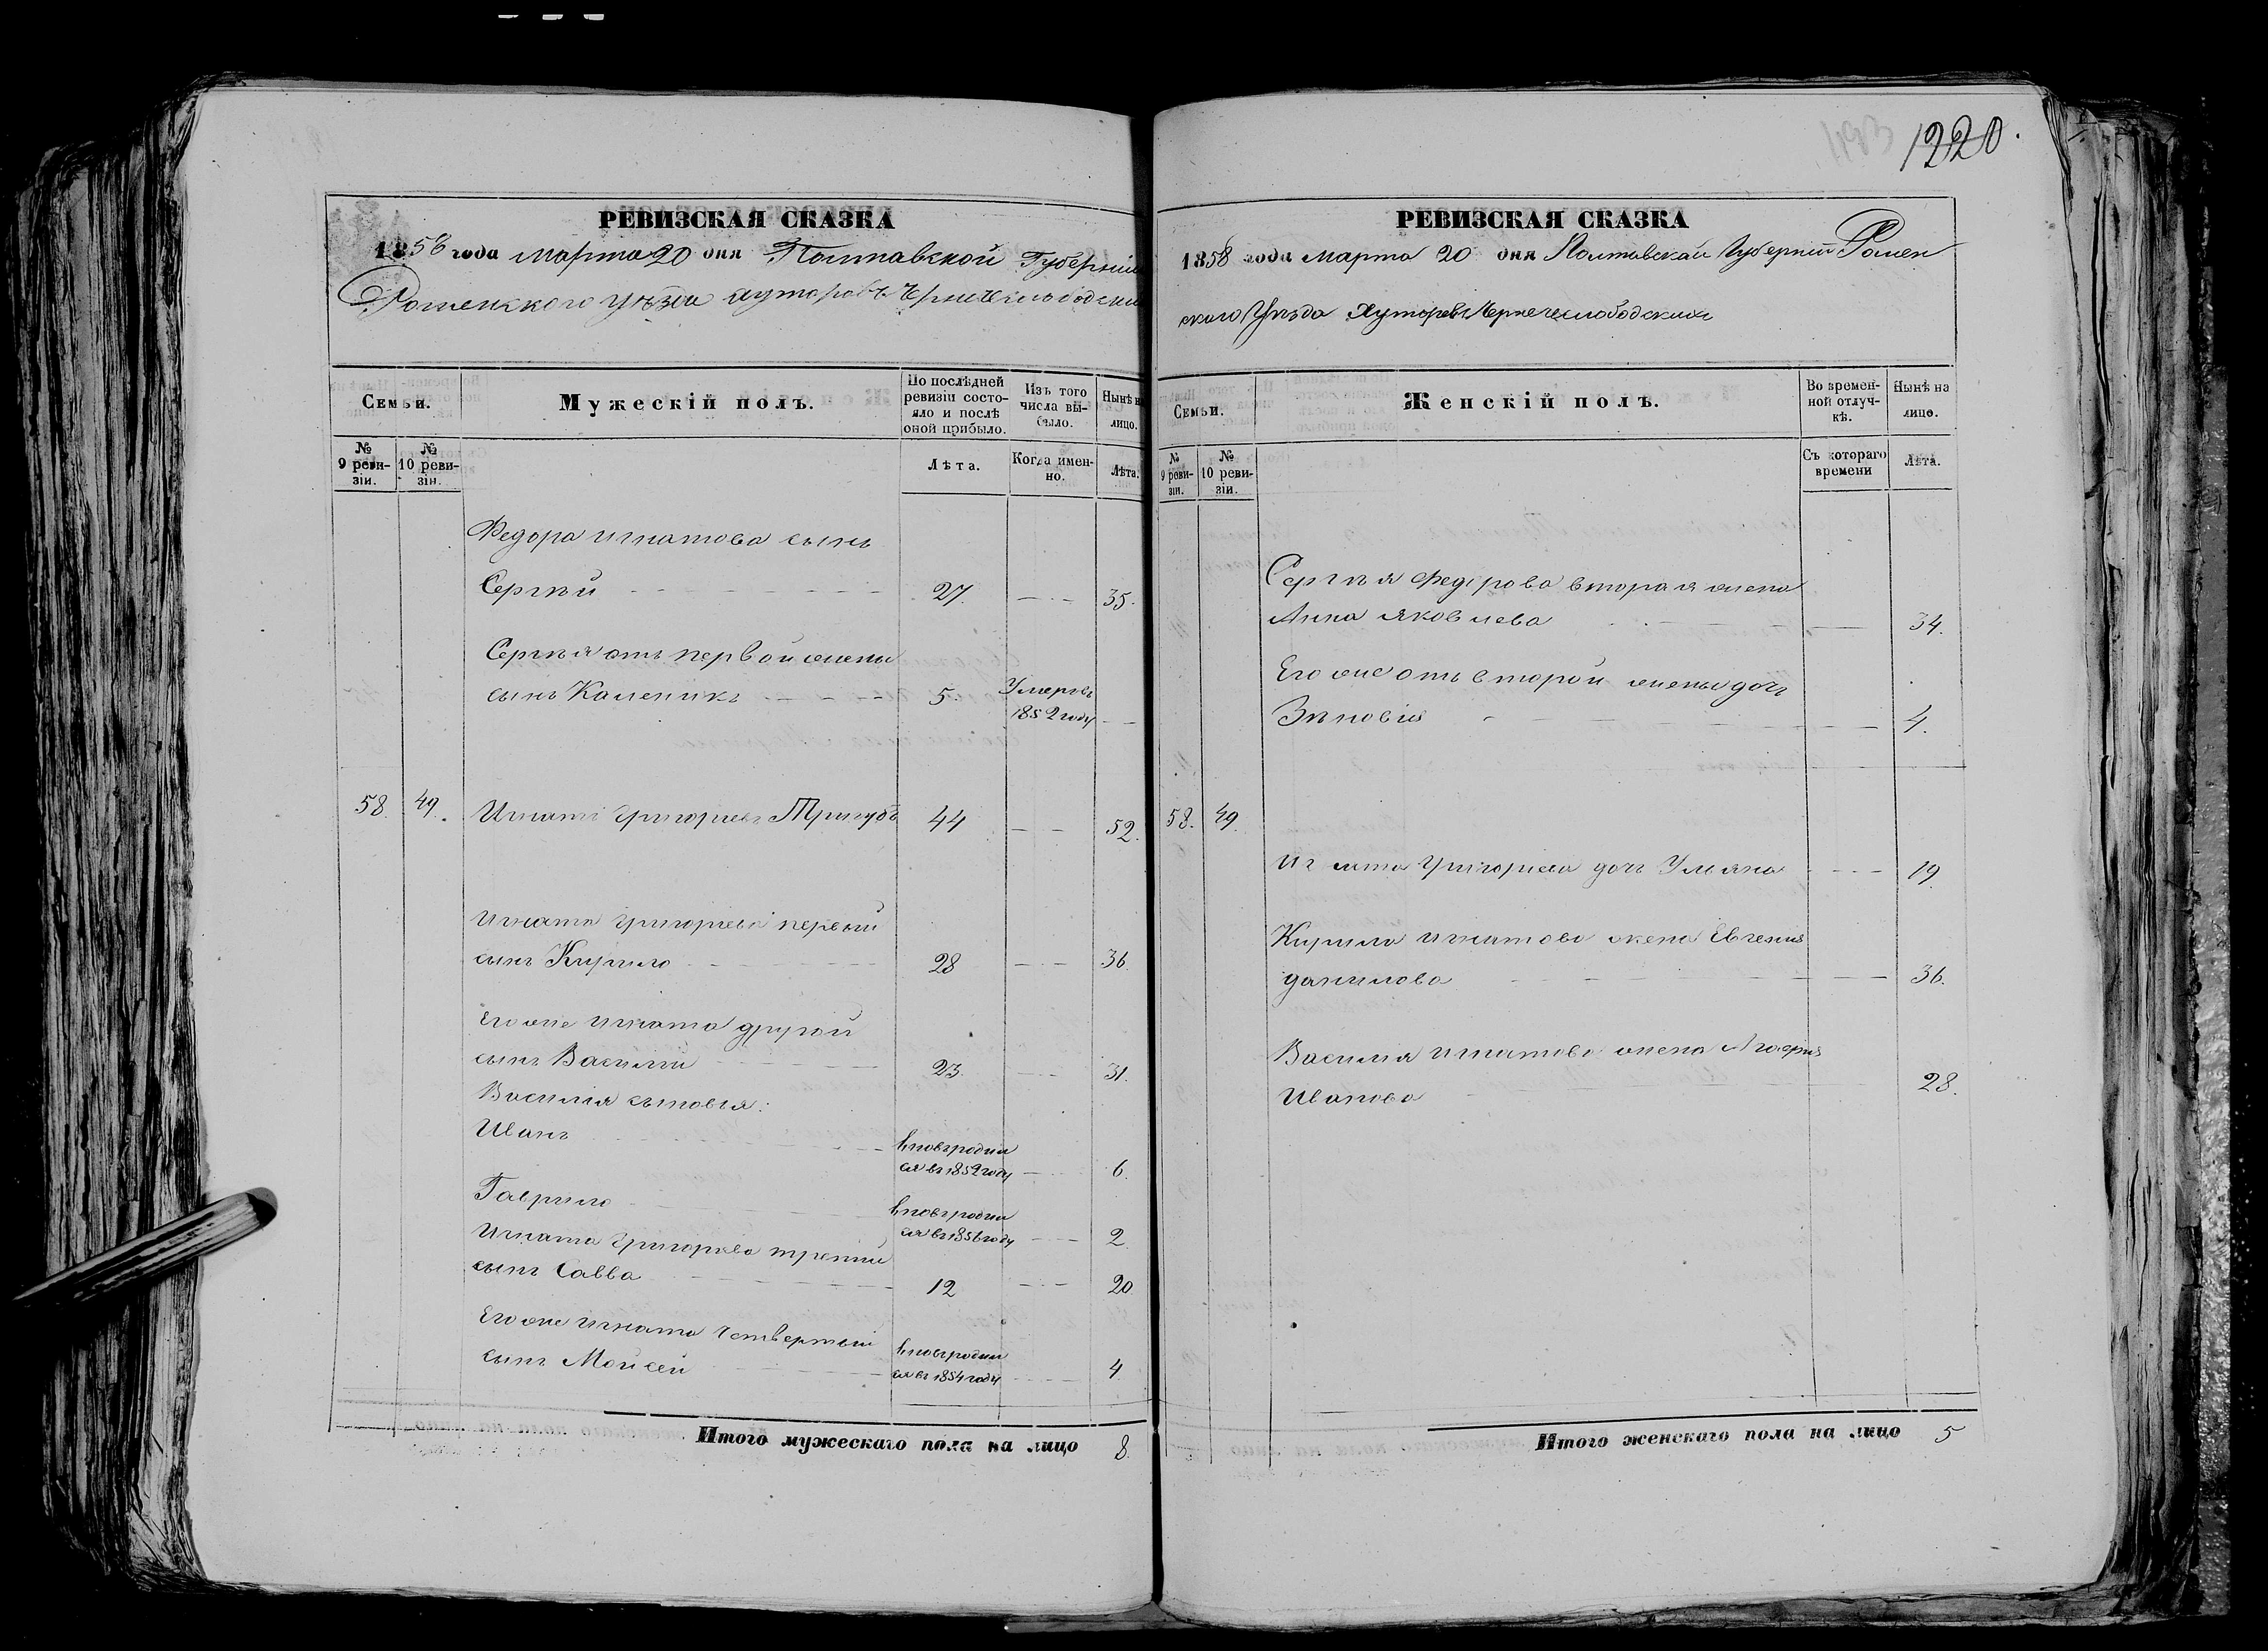 1220.
РЕВИЗСКАЯ СКАЗКА
1858 года марта 20 дня Полтавской Губерніи
Роменского уѣзда хуторовъ Чернечеслободски
Семьи.
Мужескій полъ.
По послѣдней ревизіи состояло и послѣ оной прибыло.
Изъ того числа выбыло.
Нынѣ на лицо.
№ 9 ревизіи.
№ 10 ревизіи.
Лѣта.
Когда именно.
Лѣта.
Федора игнатова сынъ
Сергѣй 27. 35.
Сергѣя отъ первой жены
сынъ Каленикъ 5. Умеръ въ 1852 году
58. 49. Игнатъ григорьевъ Тригубъ 44 52.
игната григорьева первый
сынъ Кирило 28 36.
Его же игната другой
сынъ Василий 23. 31.
Василія сыновья:
Иванъ вновь родил ся въ 1852 году 6.
Гаврило вновь родил ся въ 1856 году 2.
Игната григорьева третий
сынъ Савва 12 20
Его же игната четвертый
сынъ Мойсей вновь родил ся въ 1854 году 4
Итого мужескаго пола на лицо 8.
РЕВИЗСКАЯ СКАЗКА
1858 года марта 20 дня Полтавской Губерніи Ромен
ского Уѣзда Хуторовъ Чернечеслободскихъ
Семьи.
Женскій полъ.
Во временной отлучкѣ.
Нынѣ на лицо.
№ 9 ревизіи.
№ 10 ревизіи.
Съ котораго времени
Лѣта.
Сергѣя федорова вторая жена
Анна яковлева 34.
Его же отъ второй жены дочь
Зѣновія 4.
58. 49.
Игната григорьева дочь Ульяна 19
Кирила игнатова жена Евгенія
данилова 36.
Василія игнатова жена
Иванова 28.
Итого женскаго пола на лицо 5